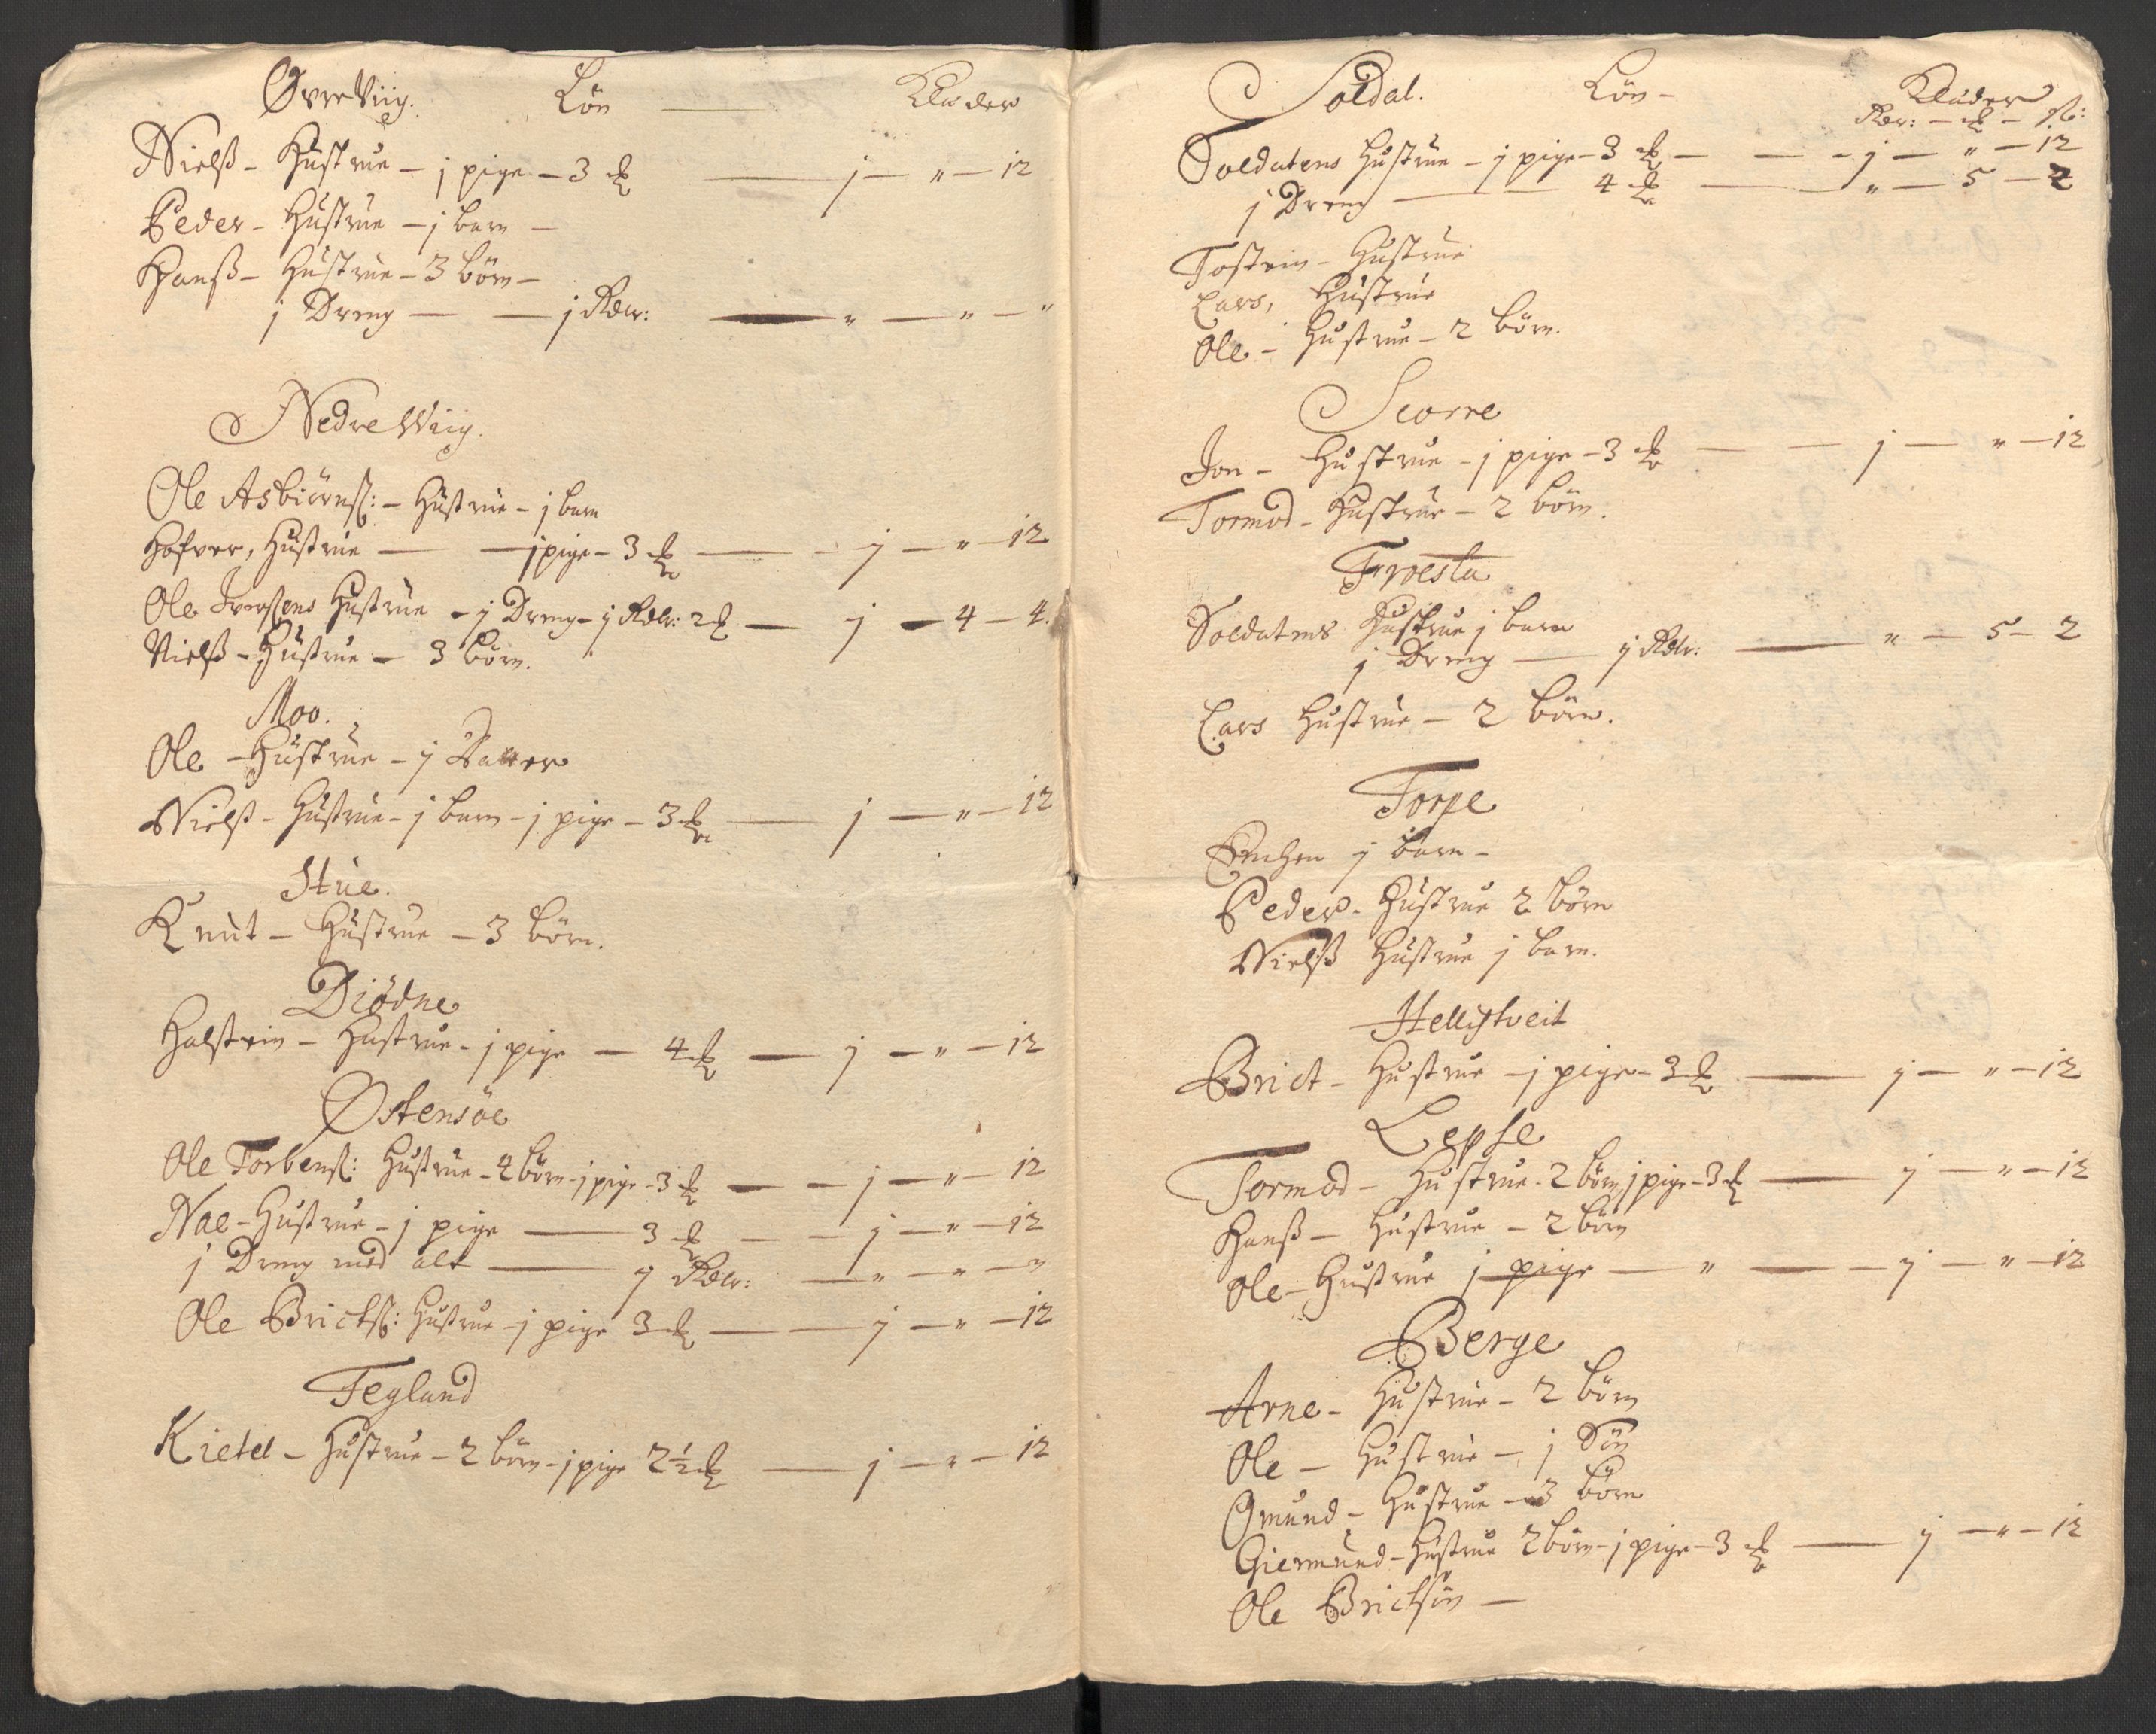 Øvre Viig. Løn — Klæder
Nielß - Hustrue - j pige - 3 ℔ — j — " — 12
Peder - Hustrue - j barn -
Hanß - Hustrue - 3 børn -
j Dreng — — j Rdlr: — " — " — "
Nedre Wiig.
Ole Asbiørnß: - Hustrue - j barn
Hustrue — j pige - 3 ℔ — j — " — 12
Ole Iverßens Hustrue - j Dreng - j Rdlr: 2 ℔ — j — 4 — 4.
Nielß - Hustrue - 3 børn.
Moo.
Ole - Hustrue - j
Nielß - Hustrue - j barn - j pige - 3 ℔ — j — " — 12
Stue.
Knut - Hustrue - 3 børn.
Diødne
Halstein - Hustrue - j pige — 4 ℔ — j — " — 12
Østensøe
Ole Torbenß: Hustrue - 4 børn - j pige - 3 ℔ — j — " — 12
Nae - Hustrue - j pige — 3 ℔ — j — " — 12
j Dreng med alt — j Rdlr: — " — " — "
Ole Brictß: Hustrue - j pige 3 ℔ — j — " — 12
Tegland
Kietel - Hustrue - 2 børn - j pige 2 1/2 ℔ — j — " — 12
Soldal. Løn - Klæder
Rdr: - ℔ - ß:
Soldatens Hustrue - j pige - 3 ℔ — j — " — 12
j Dreng — 4 ℔ — " — 5 — 2
Tostein - Hustrue
Lars, Hustrue
Ole - Hustrue - 2 børn.
Scorre
Jon - Hustrue - j pige - 3 ℔ — j — " — 12
Tormod - Hustrue - 2 børn.
Froesta
Soldatens Hustrue j barn
j Dreng — j Rdlr: — " — 5 — 2
Lars Hustrue - 2 børn.
Torpe
Enchen j barn -
Peder - Hustrue 2 børn
Nielß Hustrue j barn.
Hellistveit
Brict - Hustrue - j pige - 3 ℔ — j — " — 12
Lepse
Tormod - Hustrue - 2 børn j pige - 3 ℔ — j — " — 12
Hanß - Hustrue - 2 børn
Ole - Hustrue j pige — " — j — " — 12
Berge
Arne - Hustrue - 2 børn
Ole - Hustrue - j Søn
Omund - Hustrue - 3 børn
Giermund - Hustrue 2 børn - j pige - 3 ℔ — j — " — 12
Ole Brictsøn —